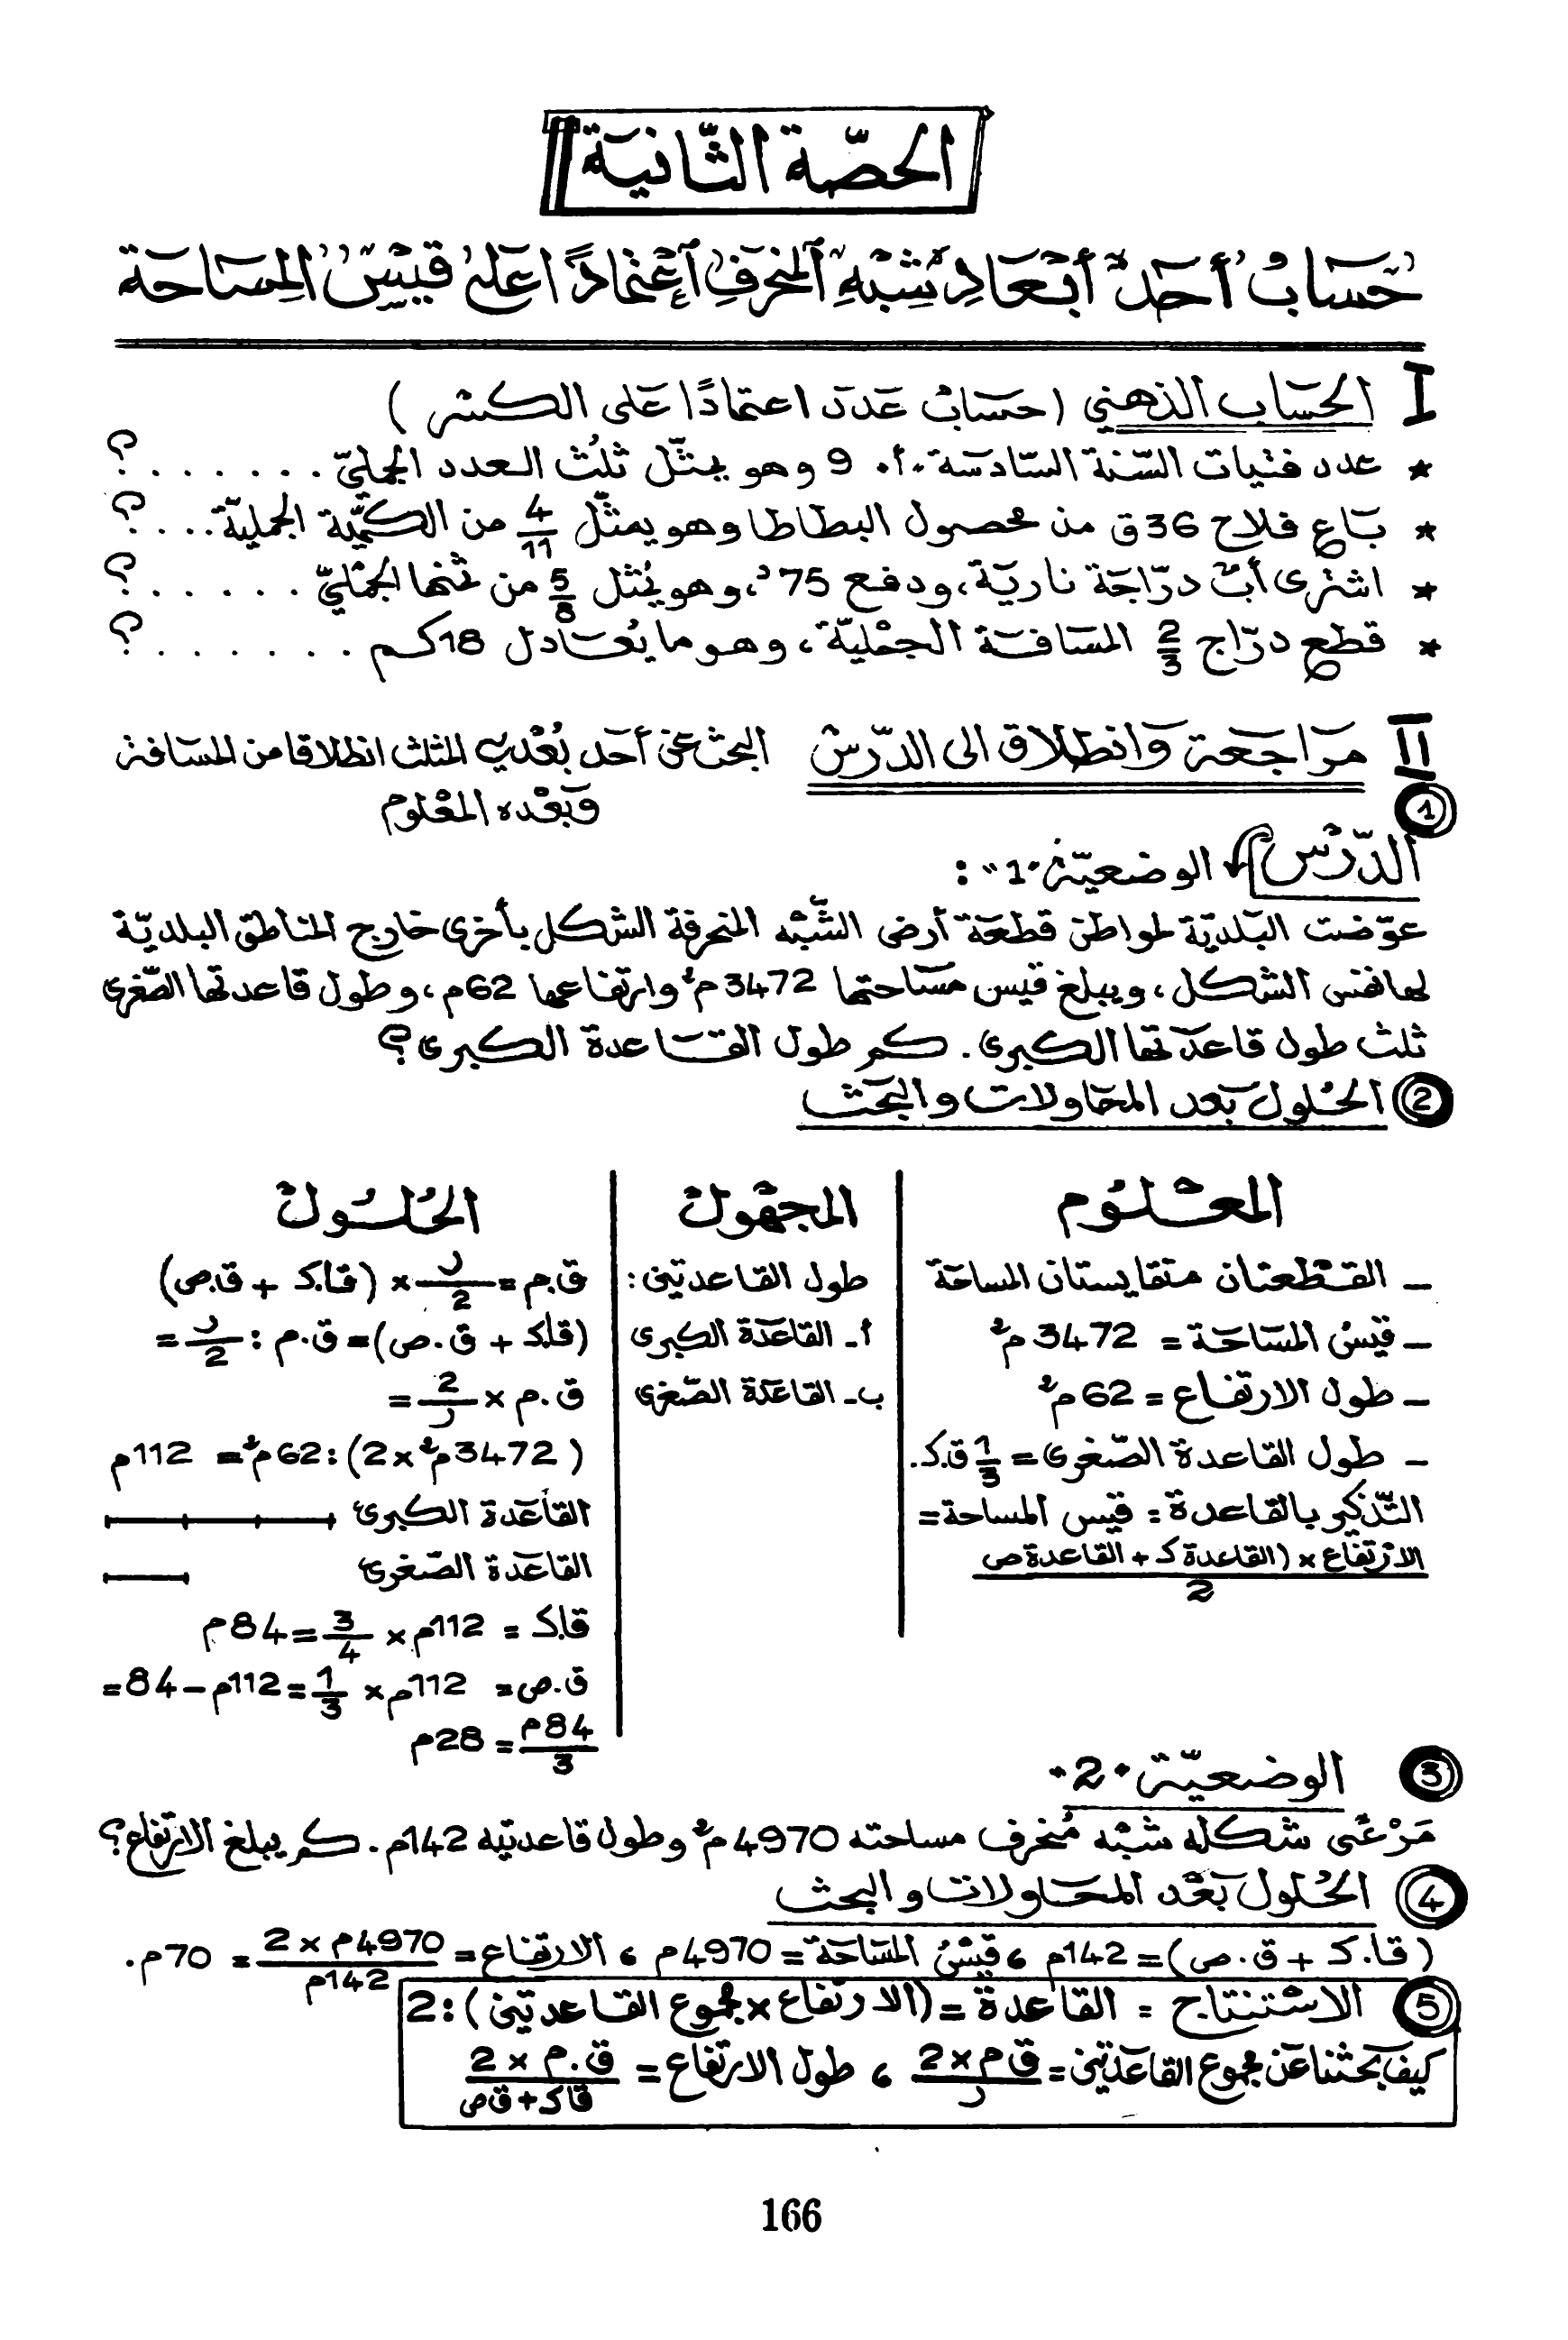 الحصّة الثّانية
حساب أحد أبعاد شبه المنحرف اعتمادًا على قيس المساحة
I الحساب الذهني (حساب عدد اعتمادًا على الكسر)
* عدد فتيات السّنة السّادسة "أ" 9 وهو يمثّل ثلُث العدد الجمليّ ......؟
* باع فلاح 36 ق من محصول البطاطا وهو يمثّل 4/11 من الكميّة الجمليّة....؟
* اشترى أب درّاجة ناريّة، ودفع 75د، وهو يُمثل 5/8 من ثمنها الجُمْليّ ......؟
* قطع درّاج 2/3 المسافة الجمْليّة، وهو ما يُعادل 18 كم ......؟
II مراجعة وانطلاق الى الدّرس البحث عن أحد بُعْدي المثلث انطلاقا من المسافة
وبُعْده المعْلوم
1 الدّرس الوضعيّة "1" :
عوّضت البلديّة لمواطن قطعة أرض الشّبْه المنحرفة الشكل بأخرى خارج المناطق البلديّة
لها نفس الشكل، ويبلغ قيس مساحتها 3472 م² وارتفاعها 62م، وطول قاعدتها الصّغرى
ثلث طول قاعدتها الكبرى. كم طول القاعدة الكبرى؟
2 الحُلول بعد المحاولات والبحث
المعلوم المجهول الحلول
- القطعتان متقايستان المساحة طول القاعدتين: ق.م = ر/2 × (قا.ك + ق.ص)
- قيس المساحة = 3472 م² أ- القاعدة الكبرى (قا.ك + ق.ص) = ق.م : ر/2 =
- طول الارتفاع = 62 م² ب- القاعدة الصّغرى ق.م × 2/ر =
- طول القاعدة الصّغرى = 1/3 ق.ك. (3472م² × 2) : 62م² = 112م
التّذكير بالقاعدة : قيس المساحة = القاعدة الكبرى
الارتفاع × (القاعدة ك + القاعدة ص / 2 القاعدة الصّغرى
قا.ك = 112م × 3/4 = 84م
ق.ص = 112م × 1/3 = 112م - 84 =
84م/3 = 28م
3 الوضعيّة "2"
مَرْعًى شكله شبْه مُنحرف مساحته 4970 م² وطول قاعدتيه 142م. كم يبلغ الارتفاع؟
4 الحُلول بعْد المحاولات والبحث
(قا.ك + ق.ص) = 142م ، قيْسُ المساحة = 4970م ، الارتفاع = 4970م × 2 / 142م = 70م.
5 الاستنتاج = القاعدة = (الارتفاع × مجموع القاعدتين) : 2
كيف بحثنا عن مجموع القاعدتين = ق م × 2 / ر ، طول الارتفاع = ق.م × 2 / قا ك + ق ص
166